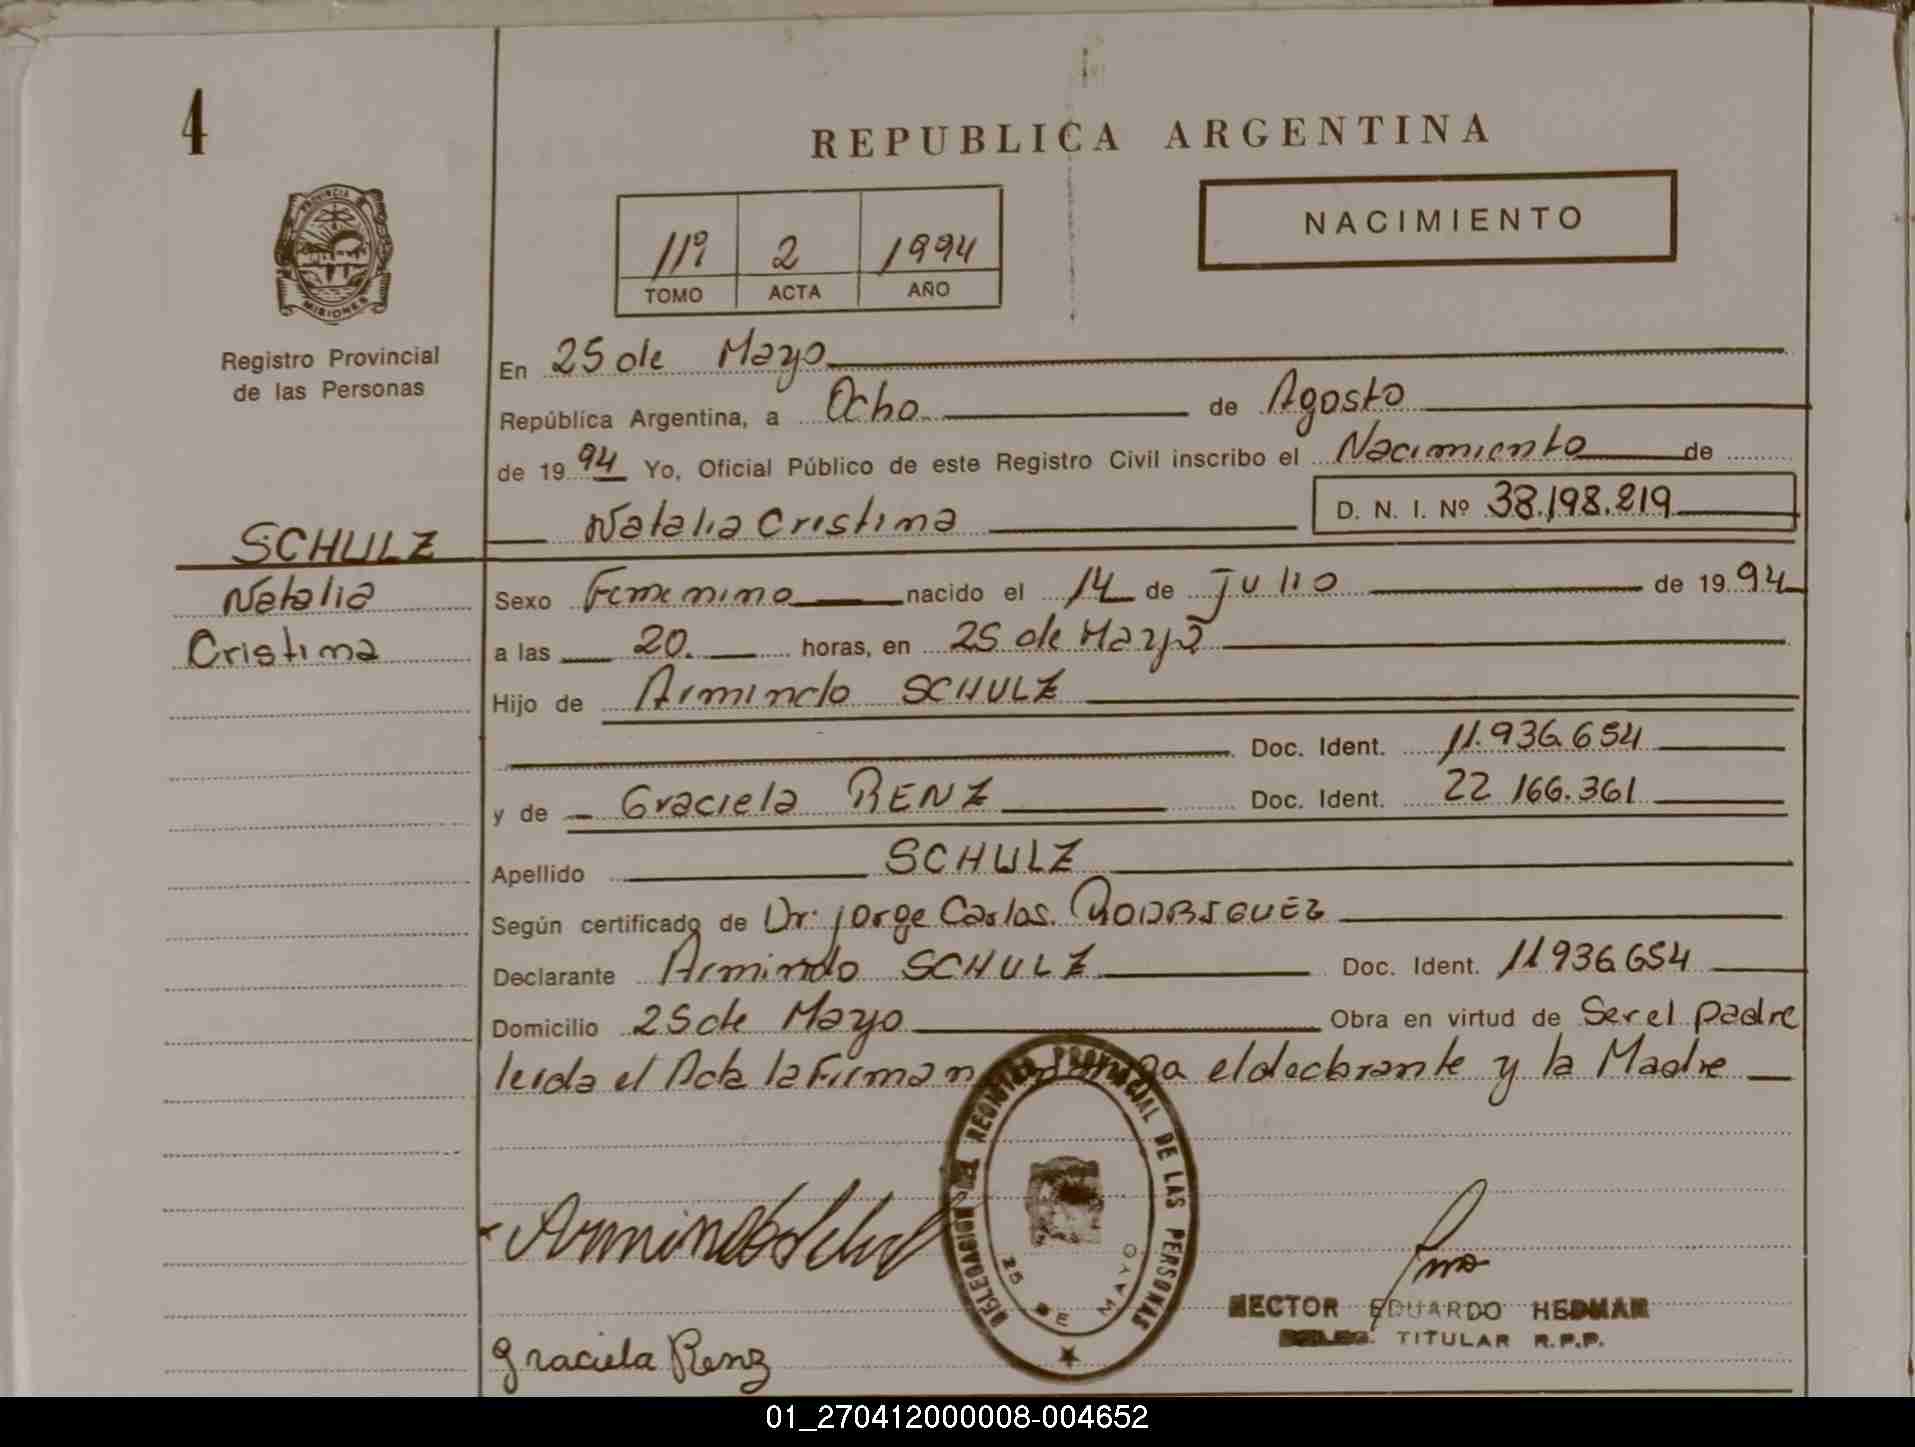 4
REPUBLICA ARGENTINA
PROVINCIA DE
MISIONES
Registro Provincial
de las Personas
11º 2 1994
TOMO ACTA AÑO
NACIMIENTO
En 25 de Mayo
República Argentina, a Ocho de Agosto
de 1994 Yo, Oficial Público de este Registro Civil inscribo el Nacimiento de
Natalia Cristina D. N. I. Nº 38.198.219
SCHULZ
Natalia
Cristina
Sexo Femenino nacido el 14 de Julio de 1994
a las 20. horas, en 25 de Mayo
Hijo de Armindo SCHULZ
Doc. Ident. 11.936.654
y de Graciela RENZ Doc. Ident. 22 166.361
Apellido SCHULZ
Según certificado de Dr. Jorge Carlos RODRIGUEZ
Declarante Armindo SCHULZ Doc. Ident. 11936654
Domicilio 25 de Mayo Obra en virtud de Ser el padre
leida el Acta la Firman el declarante y la Madre
DELEGACION DEL REGISTRO PROVINCIAL DE LAS PERSONAS
25 DE MAYO
Armindo Schulz
Graciela Renz
HECTOR EDUARDO HEDMAN
TITULAR R.P.P.
01_270412000008-004652